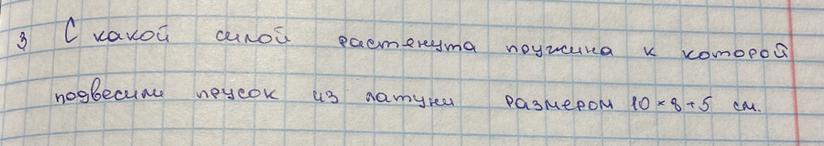 3 С какой силой растянута пружина к которой
подвесили брусок из латуни размером 10×8×5 см.